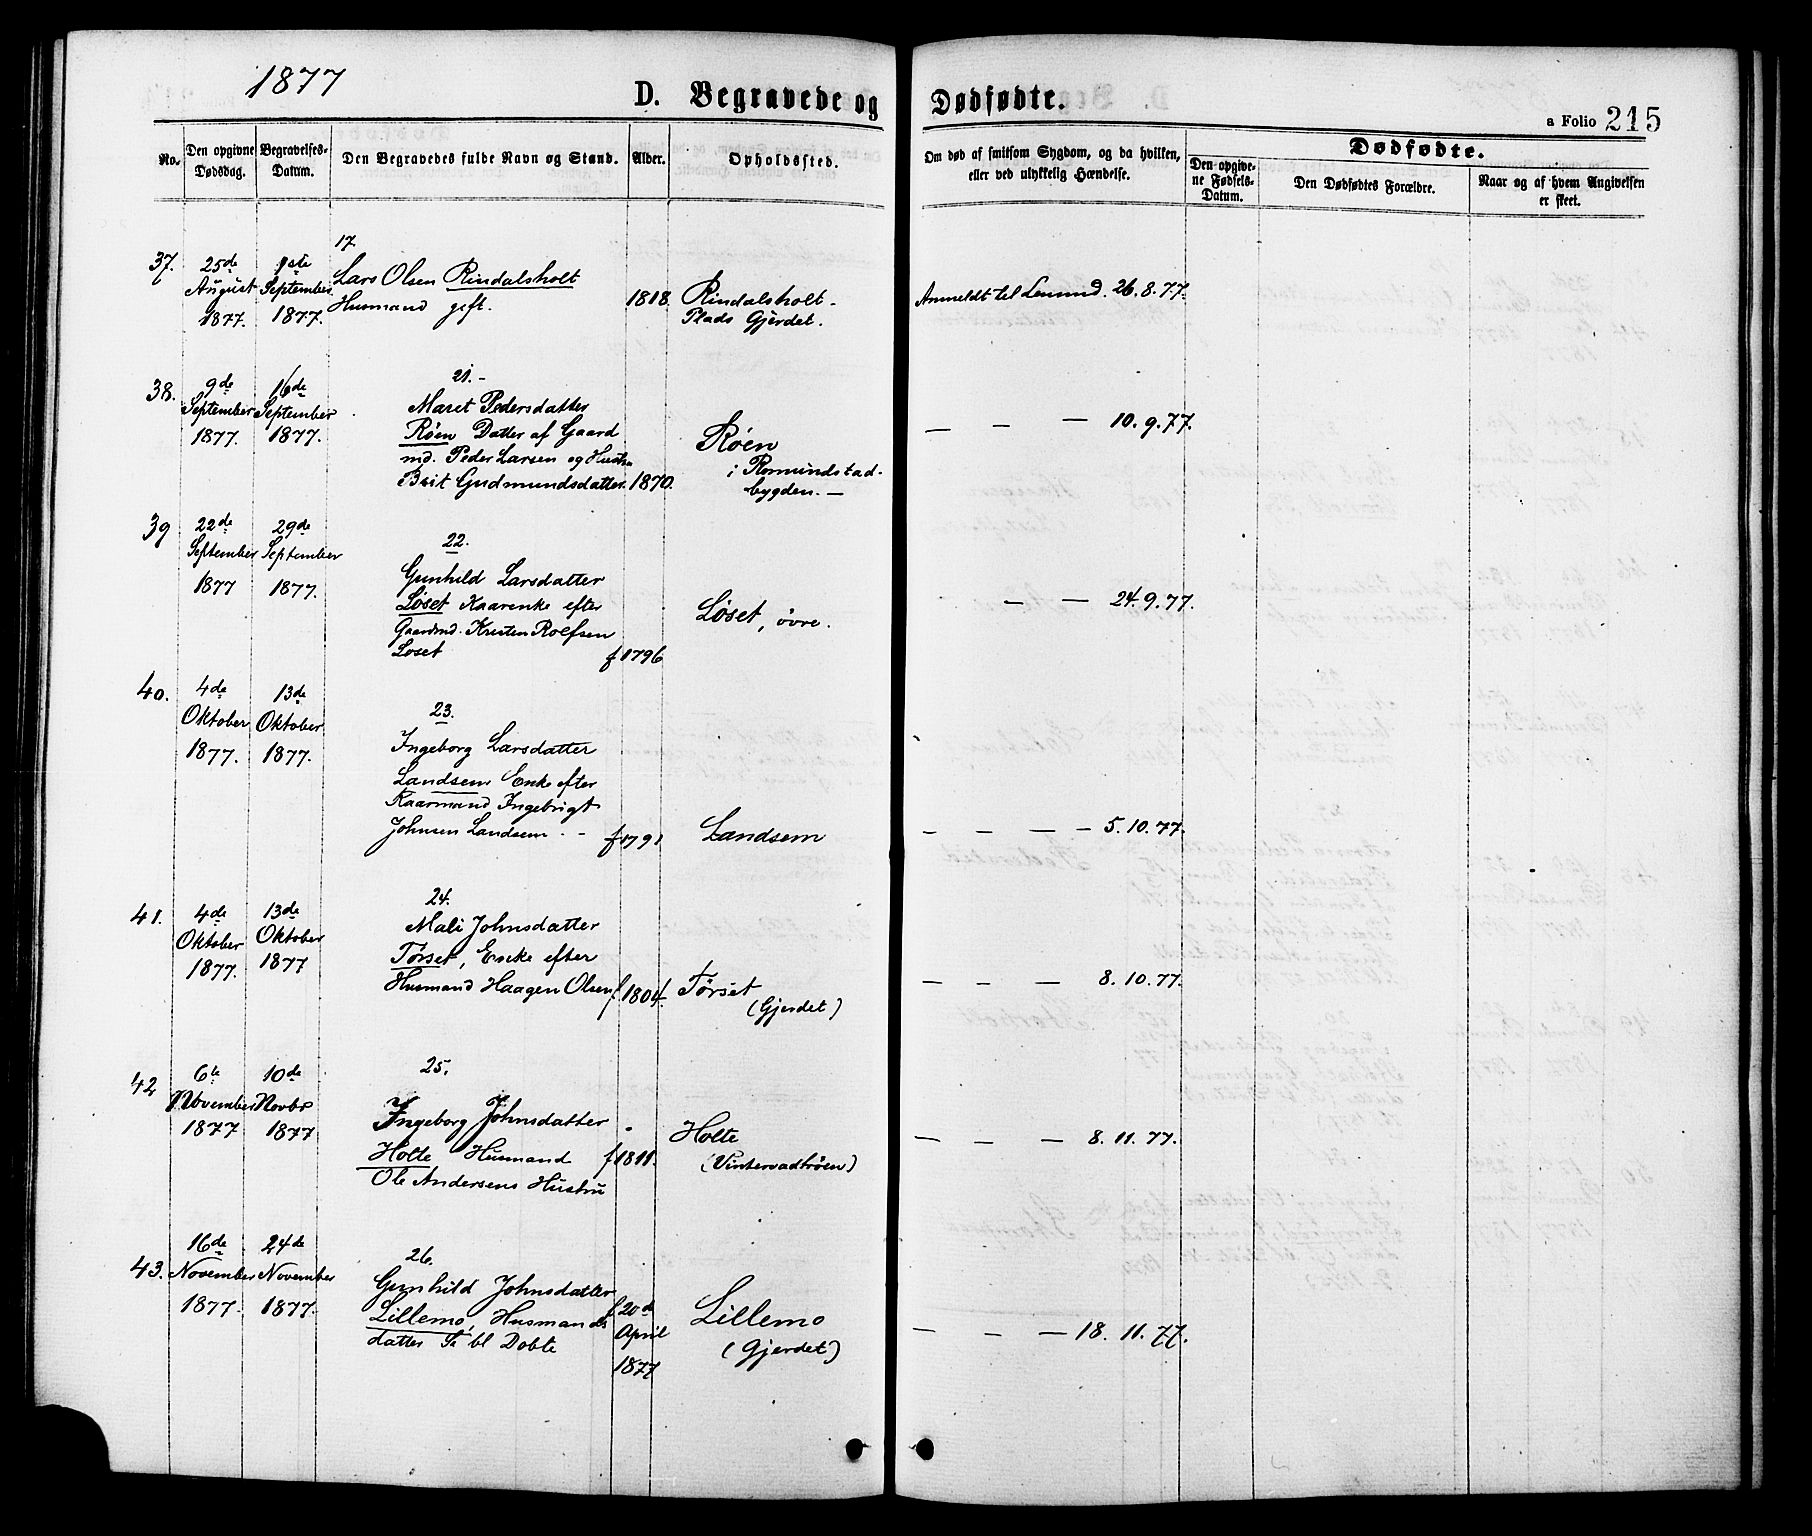 1877
D. Begravede og Dødfødte.
a Folio 215
No.
Den opgivne Dødsdag.
Begravelses-Datum.
Den Begravedes fulde Navn og Stand.
Alder.
Opholdssted.
Om død af smitsom Sygdom, og da hvilken,
eller ved ulykkelig Hændelse.
Dødfødte.
Den opgivne Fødsels-Datum.
Den Dødfødtes Forældre.
Naar og af hvem Angivelsen
er skeet.
17.
37. 25de August 1877. 1ste September 1877.
Lars Olsen Rindalsholt
Husmand gift. 1818.
Rindalsholt-
Plads Gjerdet.
Anmeldt til Lensmd. 26.8.77.
21.-
38. 9de September 1877. 16de September 1877.
Maret Pedersdatter
Røen Datter af Gaard
md. Peder Larsen og Hustru
Brit Gudmundsdatter. 1870.
Røen
i Romundstad-
bygden. —
— — — 10.9.77.
22.
39 22de September 1877 29de September 1877.
Gunhild Larsdatter
Løset Kaarenke efter
Gaardmd. Kristen Rolfsen
Løset f 1796
Løset, övre.
— — 24.9.77.
23.
40. 4de Oktober 1877. 13de Oktober 1877.
Ingeborg Larsdatter
Landsem Enke efter
Kaarmand Ingebrigt
Johnsen Landsem. - f 1791
Landsem
— — — — 5.10.77.
24.
41. 4de Oktober 1877. 13de Oktober 1877
Mali Johnsdatter
Tørset, Enke efter
Husmand Haagen Olsen f. 1804.
Tørset
(Gjerdet)
— — — 8.10.77.
25.
42 6te November 1877 10de Novbr 1877
Ingeborg Johnsdatter
Holte Husmand f 1811.
Ole Andersens Hustru
Holte
(Vintervadtrøen)
— — — 8.11.77.
26.
43. 16de November 1877. 24de November 1877.
Gunhild Johnsdatter
Lillemo, Husmands
datter bl Døbte
f 20de April 1877
Lillemo
(Gjerdet)
— — — 18.11.77.